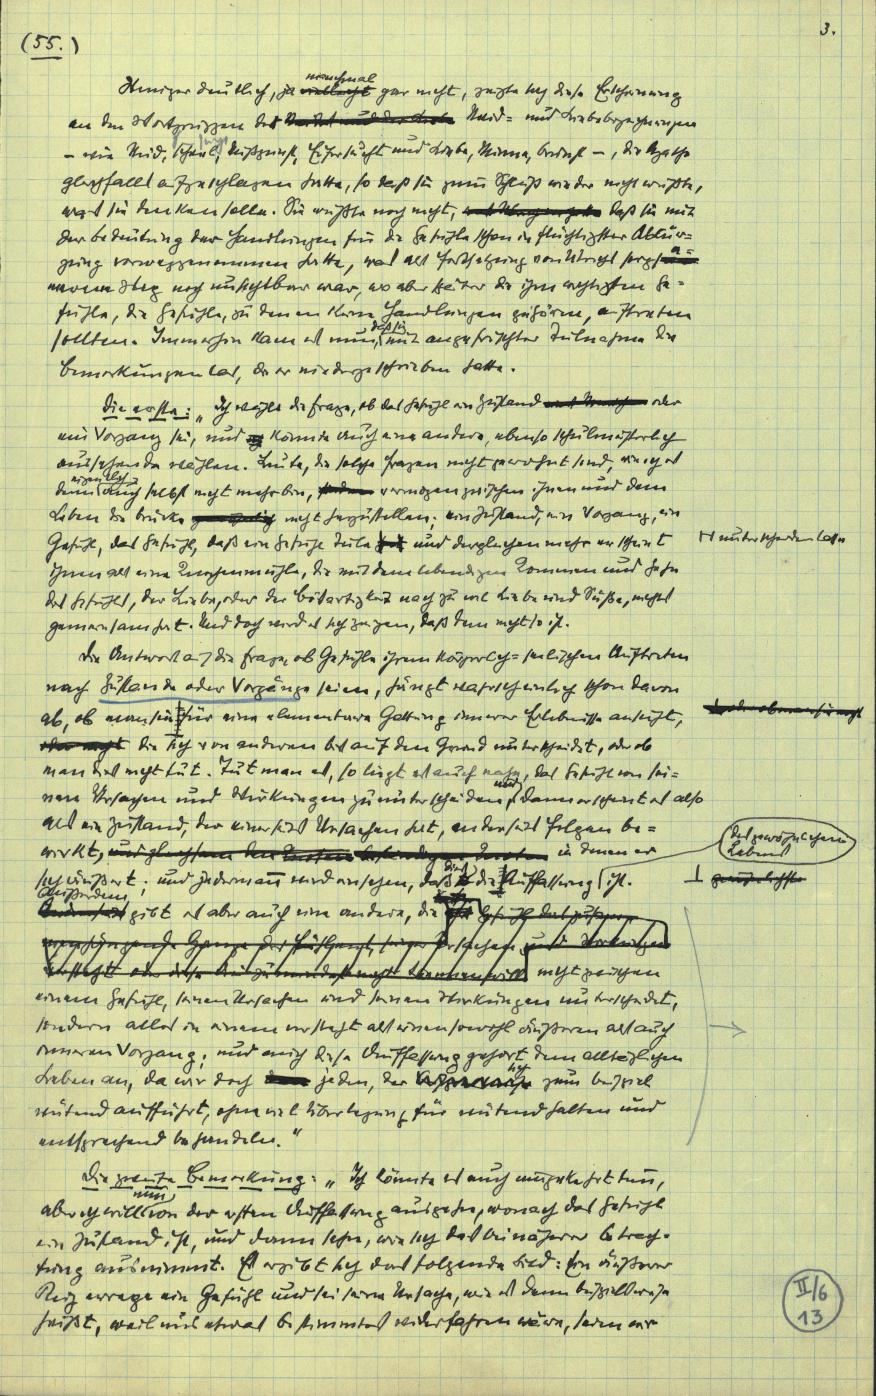 (55.)
3.
manchmal
Weniger deutlich, ja vielleicht gar nicht, zeigte sich diese Erscheinung
an den Wortgruppen der Neid- und Liebebezeichnungen
– wie Neid, Scheel, Mißgunst, Eifersucht und Liebe, Minne, Brunst –, die Agathe
gleichfalls aufgeschlagen hatte, so daß sie zum Schluß wieder nicht wußte,
was sie denken solle. Sie wußte noch nicht, daß sie mit
der Bedeutung der Handlungen für die Gefühle schon in flüchtigster Abkür-
zung vorweggenommen hatte, was als Fortsetzung von Ulrichs
Weg noch unsichtbar war, wo aber weiter die ihm wichtigsten Ge-
fühle, die Gefühle, zu denen keine Handlungen gehören, auftreten
daß sie
sollten. Immerhin kam es nun, mit angefrischter Teilnahme die
Bemerkungen las, die er niedergeschrieben hatte.
Die erste: „Ich wähle die Frage, ob das Gefühl ein Zustand oder
ein Vorgang sei, und könnte auch eine andere, ebenso schulmeisterlich
aussehende wählen. Leute, die solche Fragen nicht gewohnt sind, wie ich es
eigentlich
denn auch selbst nicht mehr bin, vermögen zwischen ihnen und dem
Leben die Brücke nicht herzustellen; ein Zustand, ein Vorgang, ein
Gefühl, das Gefühl, daß ein Gefühl und dergleichen mehr erscheint
unterscheiden lasse
ihnen als eine Knochenmühle, die mit dem lebendigen Kommen und Gehn
des Gefühls, der Liebe, oder der Bösartigkeit nach zu viel Liebe und Süße, nichts
gemeinsam hat. Und doch wird es sich zeigen, daß dem nicht so ist.
Die Antwort auf die Frage, ob Gefühle ihrem körperlich-seelischen Auftreten
nach Zustände oder Vorgänge seien, hängt wahrscheinlich schon davon
ab, ob man sie für eine elementare Gattung innerer Erlebnisse ansieht,
oder nicht die sich von anderen bis auf den Grund unterscheidet, oder ob
man dies nicht tut. Tut man es, so liegt es auch nahe, das Gefühl von sei-
und
nen Ursachen und Wirkungen zu unterscheiden, dann erscheint es also
als ein Zustand, der einerseits Ursachen hat, anderseits Folgen be-
wirkt, in denen er
des gewöhnlichen
Lebens
sich äußert; und jedermann wird einsehen, daß dies die Auffassung ist.
Außerdem
gibt es aber auch eine andere, die
nicht zwischen
einem Gefühl, seinen Ursachen und seinen Wirkungen unterscheidet,
sondern alles in einem versteht als einen sowohl äußeren als auch
inneren Vorgang; und auch diese Auffassung gehört dem alltäglichen
sich
Leben an, da wir doch jeden, der zum Beispiel
wütend aufführt, ohne viel Überlegung für wütend halten und
entsprechend behandeln.“
Die zweite Bemerkung: „Ich könnte es auch umgekehrt tun,
nun
aber ich will von der ersten Auffassung ausgehn, wonach das Gefühl
ein Zustand ist, und dann sehn, wie sich das bei näherer Betrach-
tung ausnimmt. Es ergibt sich das folgende Bild: Ein äußerer
Reiz errege ein Gefühl und sei seine Ursache, wie es denn beispielsweise
heißt, weil mir etwas Bestimmtes widerfahren wäre,
II/6
13